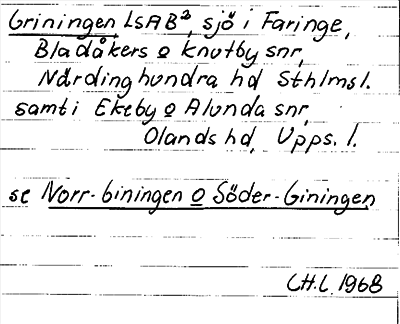 Griningen LSAB², sjö i Faringe,
Bladåkers o Knutby snr,
Närdinghundra hd Sthlms l.
samt i Ekeby o Alunda snr,
Olands hd, Upps. l.
se Norr-Giningen o Söder-Giningen
CH.L. 1968